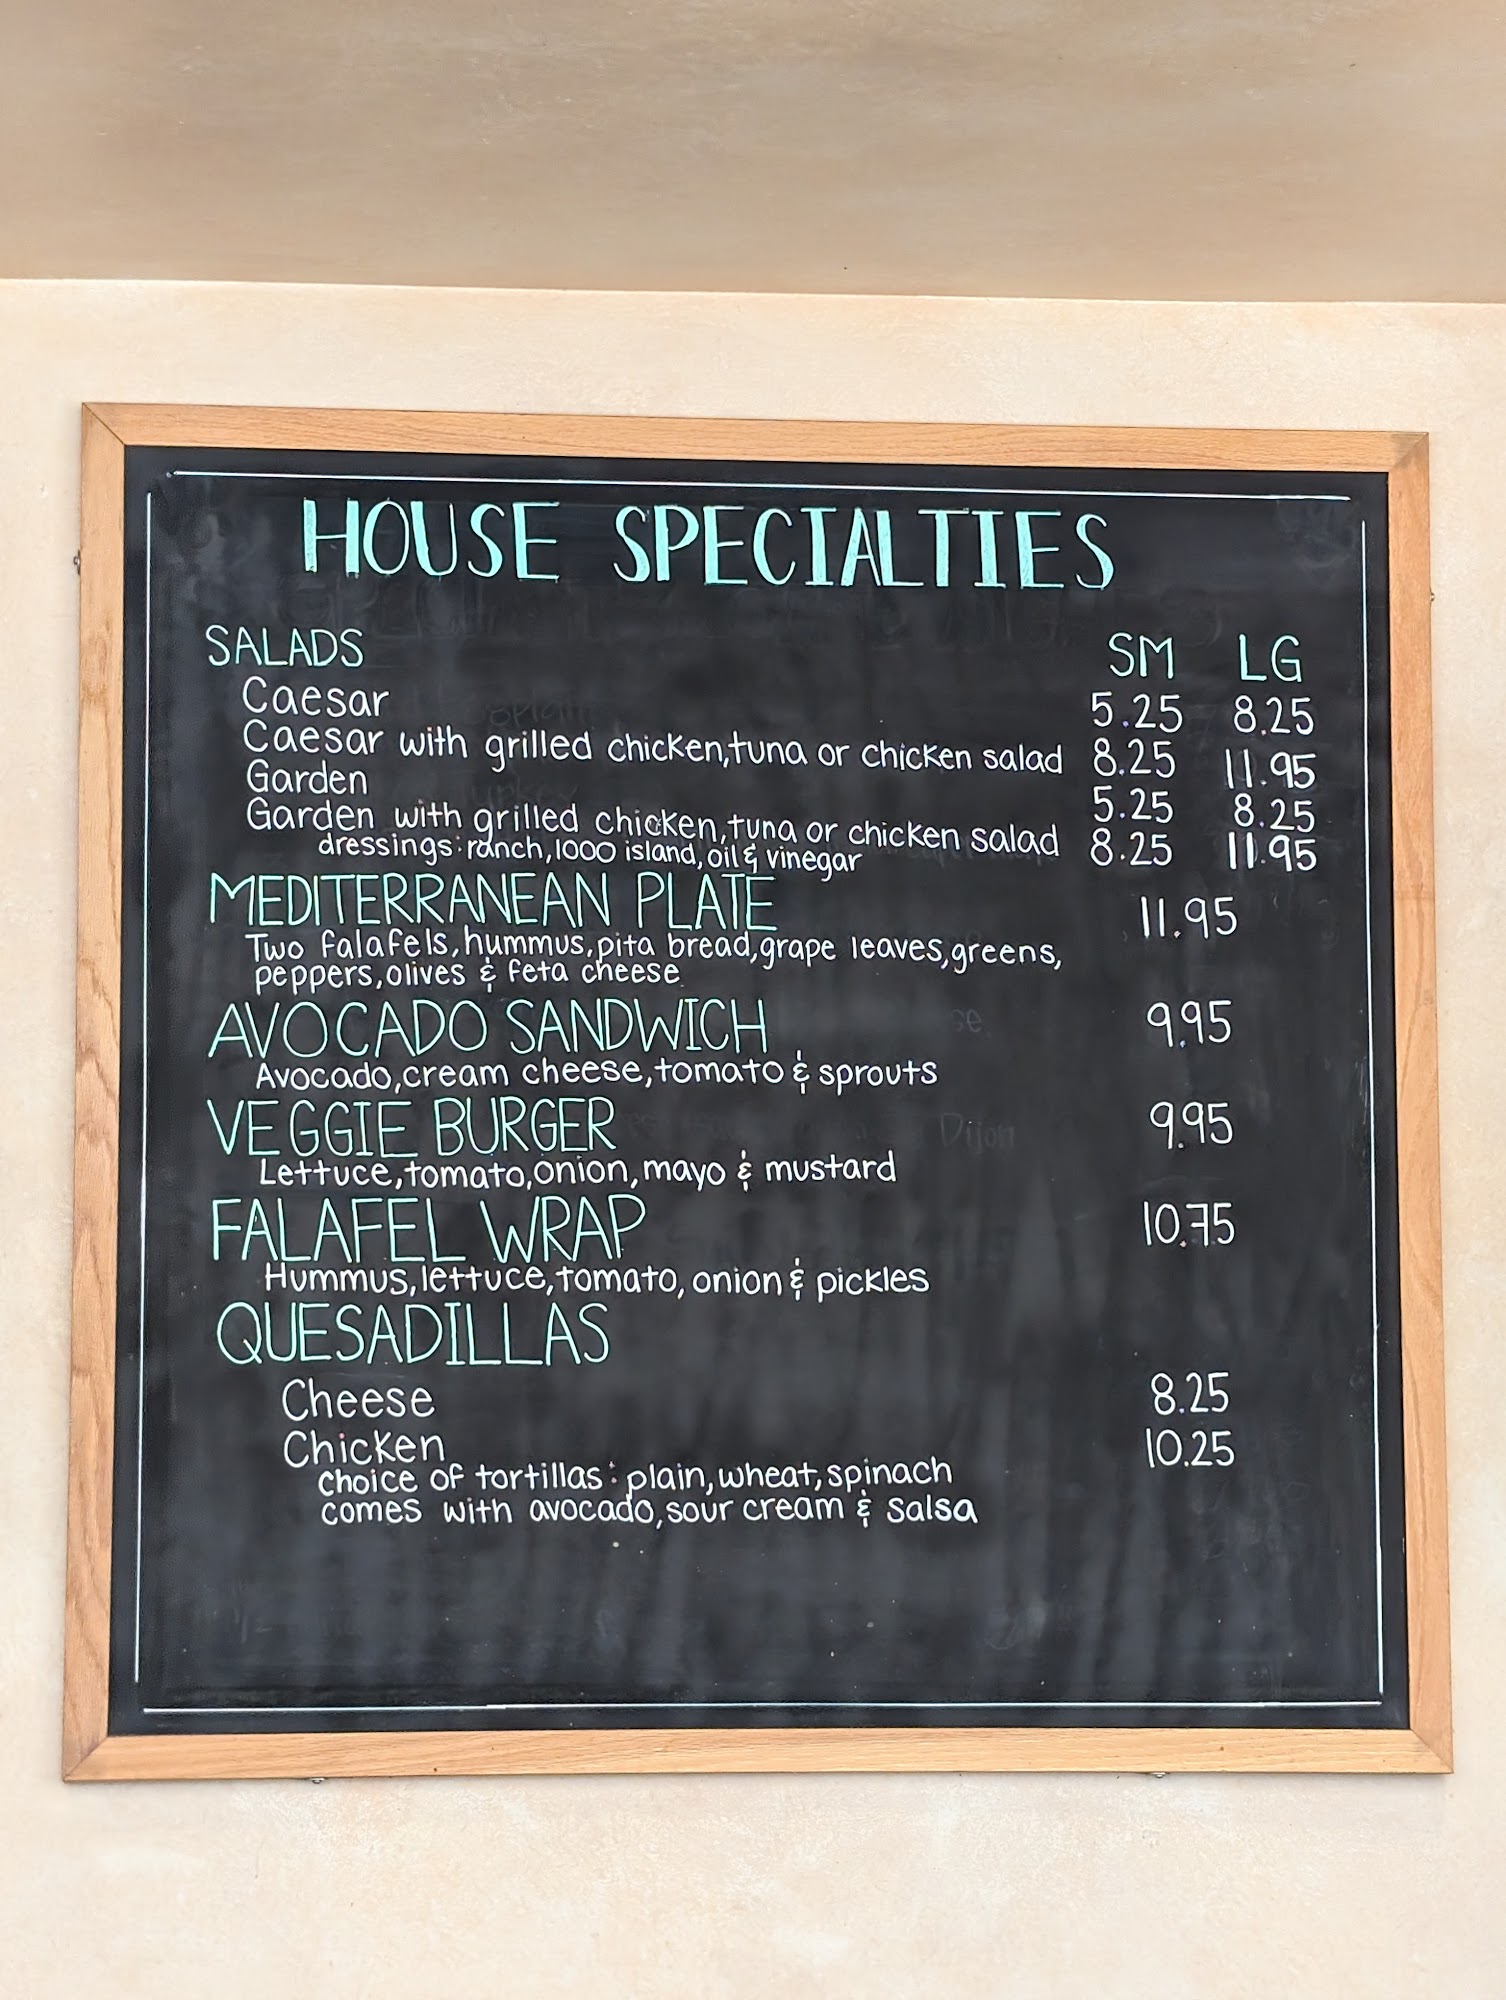 HOUSE SPECIALTIES
SALADS SM LG
Caesar 5.25 8.25
Caesar with grilled chicken, tuna or chicken salad 8.25 11.95
Garden 5.25 8.25
Garden with grilled chicken, tuna or chicken salad 8.25 11.95
dressings: ranch, 1000 island, oil & vinegar
MEDITERRANEAN PLATE 11.95
Two falafels, hummus, pita bread, grape leaves, greens,
peppers, olives & feta cheese
AVOCADO SANDWICH 9.95
Avocado, cream cheese, tomato & sprouts
VEGGIE BURGER 9.95
Lettuce, tomato, onion, mayo & mustard
FALAFEL WRAP 10.75
Hummus, lettuce, tomato, onion & pickles
QUESADILLAS
Cheese 8.25
Chicken 10.25
choice of tortillas: plain, wheat, spinach
comes with avocado, sour cream & salsa